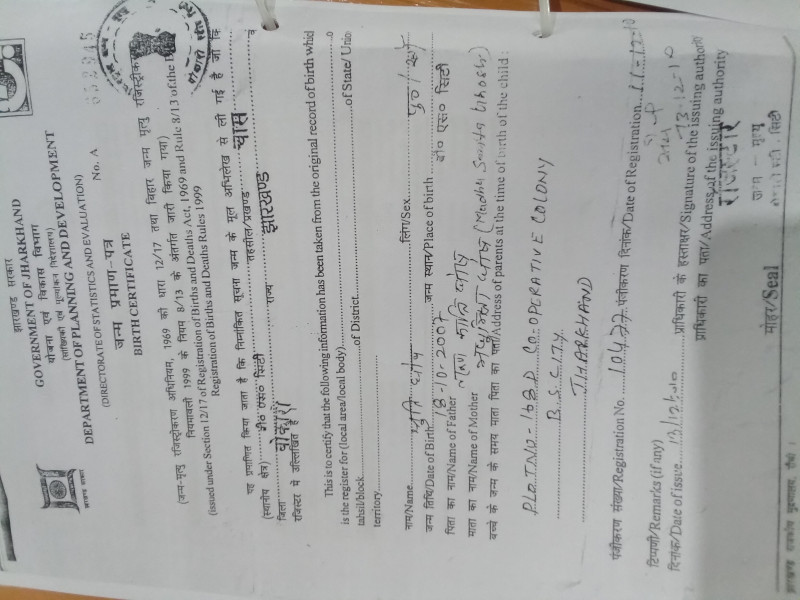 झारखण्ड सरकार
GOVERNMENT OF JHARKHAND
योजना एवं विकास विभाग
(सांख्यिकी एवं मूल्यांकन निदेशालय)
DEPARTMENT OF PLANNING AND DEVELOPMENT
(DIRECTORATE OF STATISTICS AND EVALUATION)
No. A
जन्म प्रमाण-पत्र
BIRTH CERTIFICATE
(जन्म-मृत्यु रजिस्ट्रीकरण अधिनियम, 1969 की धारा 12/17 तथा बिहार जन्म मृत्यु रजिस्ट्रीकरण
नियमावली 1999 के नियम 8/13 के अंतर्गत जारी किया गया)
(issued under Section 12/17 of Registration of Births and Deaths Act, 1969 and Rule 8/13 of the
Registration of Births and Deaths Rules 1999
यह प्रमाणित किया जाता है कि निम्नांकित सूचना जन्म के मूल अभिलेख से ली गई है जो कि
(स्थानीय क्षेत्र) बी० एस० सिटी तहसील/प्रखण्ड चास
जिला बोकारो राज्य झारखण्ड
रजिस्टर में उल्लिखित है।
This is to certify that the following information has been taken from the original record of birth which
is the register for (local area/local body)
tahsil/block of District of State/Unio
territory
नाम/Name लिंग/Sex
जन्म तिथि/Date of Birth 18-10-2007 जन्म स्थान/Place of birth बी० एस० सिटी
पिता का नाम/Name of Father
माता का नाम/Name of Mother (Madhu Smita Ghosh)
बच्चे के जन्म के समय माता पिता का पता/Address of parents at the time of birth of the child:
PLOT.NO-168.D CO-OPERATIVE COLONY
B. S. CITY
JHARKHAND
पंजीकरण संख्या/Registration No. 10477 पंजीकरण दिनांक/Date of Registration
टिप्पणी/Remarks (if any)
दिनांक/Date of issue प्राधिकारी के हस्ताक्षर/Signature of the issuing authority
13-12-10
प्राधिकारी का पता/Address of the issuing authority
रजिस्ट्रार
जन्म - मृत्यु
मोहर/Seal